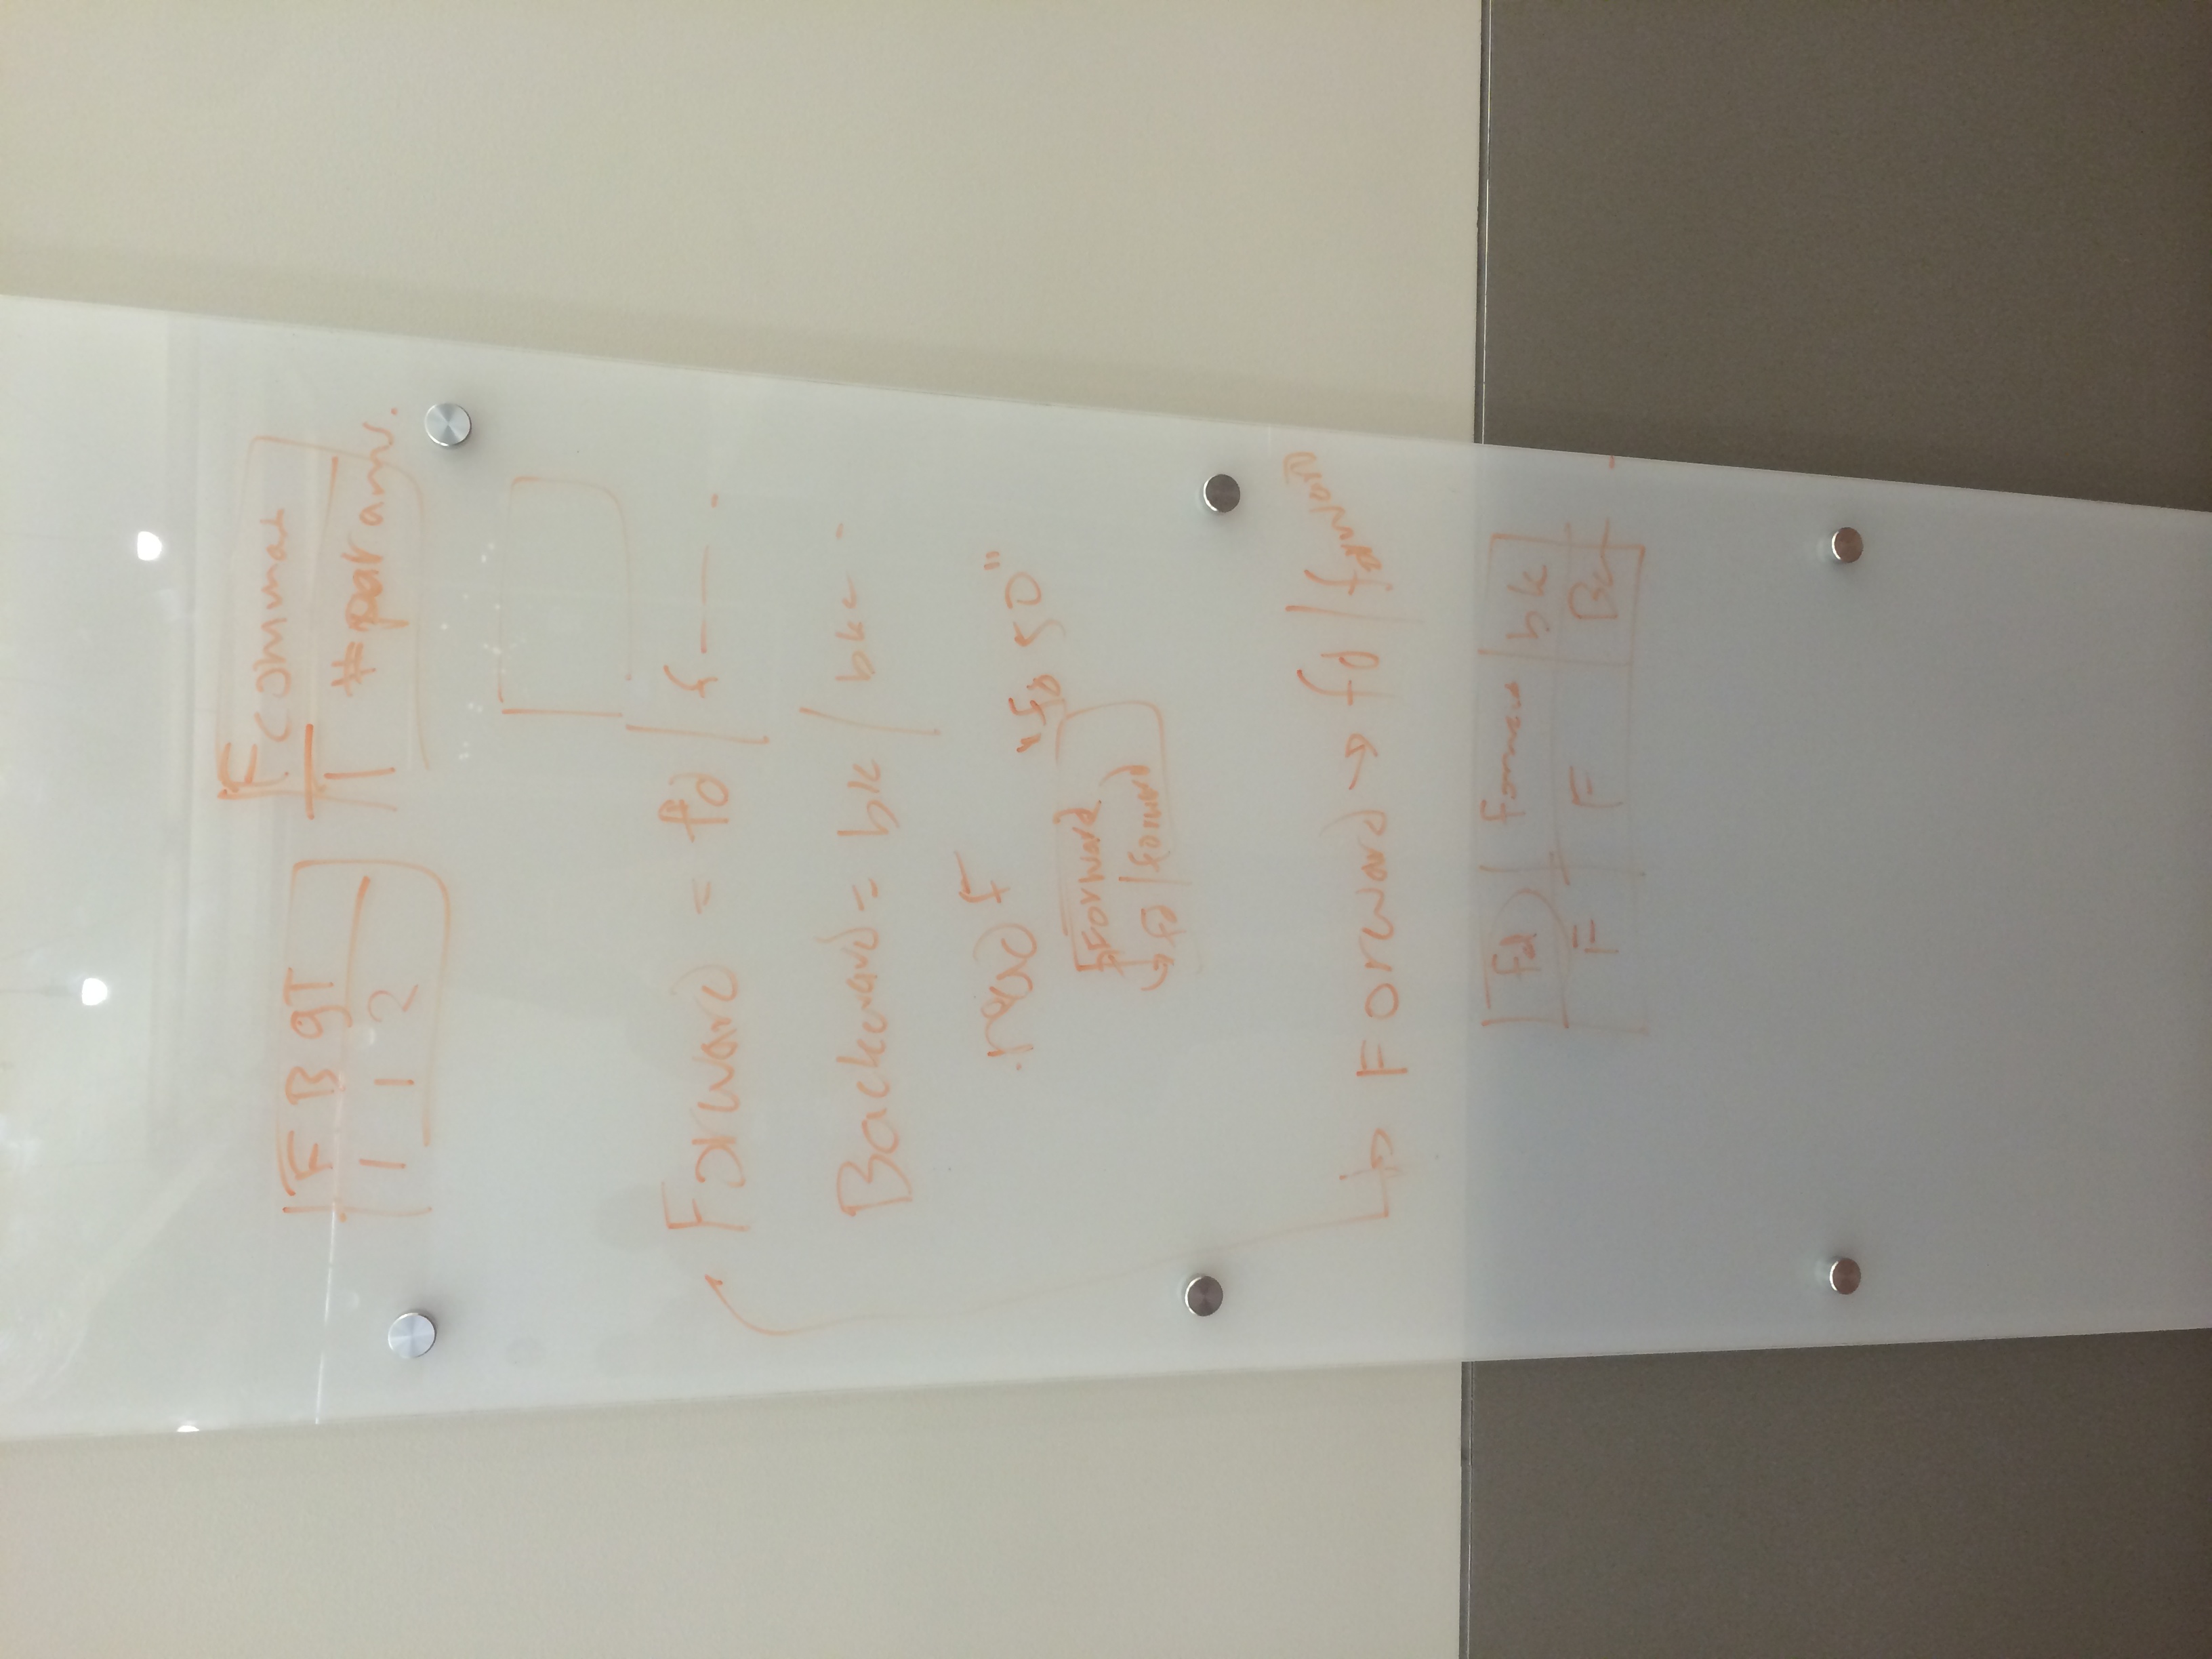 F B gT
1 1 2
F comman
1 # params.
Forward = fd | f
Backward = bk | bk
read F
"fd 50"
Forward
fd | forward
Forward → fd | forward
fd | forward | bk
F F